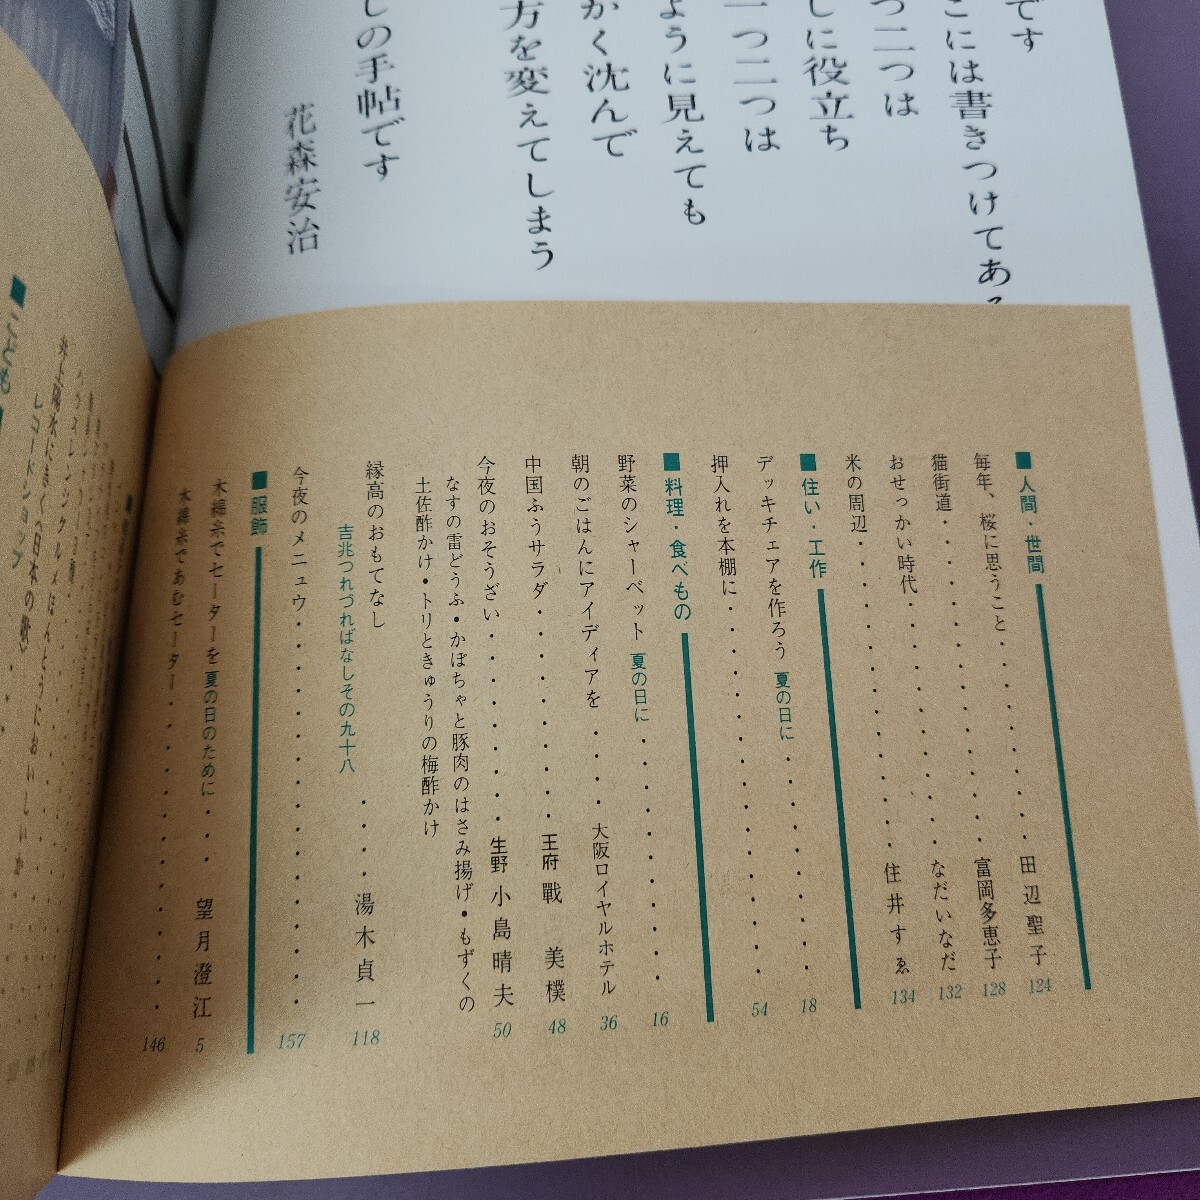 です
こには書きつけてある
つ二つは
しに役立ち
一つ二つは
ように見えても
かく沈んで
方を変えてしまう
しの手帖です
花森安治
■人間・世間
毎年、桜に思うこと・・・・・・・・・・田辺聖子 124
猫街道・・・・・・・・・・富岡多恵子 128
おせっかい時代・・・・・・・・・・なだいなだ 132
米の周辺・・・・・・・・・・住井すゑ 134
■住い・工作
デッキチェアを作ろう 夏の日に・・・・・・・ 18
押入れを本棚に・・・・・・・・・・ 54
■料理・食べもの
野菜のシャーベット 夏の日に・・・・・・・・ 16
朝のごはんにアイディアを・・・・大阪ロイヤルホテル 36
中国ふうサラダ・・・・・・・・王府 戰 美樸 48
今夜のおそうざい・・・・・・・・生野 小島晴夫 50
なすの雷どうふ・かぼちゃと豚肉のはさみ揚げ・もずくの
土佐酢かけ・トリときゅうりの梅酢かけ
縁高のおもてなし・・・・湯木貞一 118
吉兆つれづればなしその九十八
今夜のメニュウ・・・・・・・・・・・・ 157
■服飾
木綿糸でセーターを 夏の日のために・・・望月澄江 5
木綿糸であむセーター・・・・・・・・・・ 146
■こども
井上陽水にきく〈日本の歌〉
レコードショップ